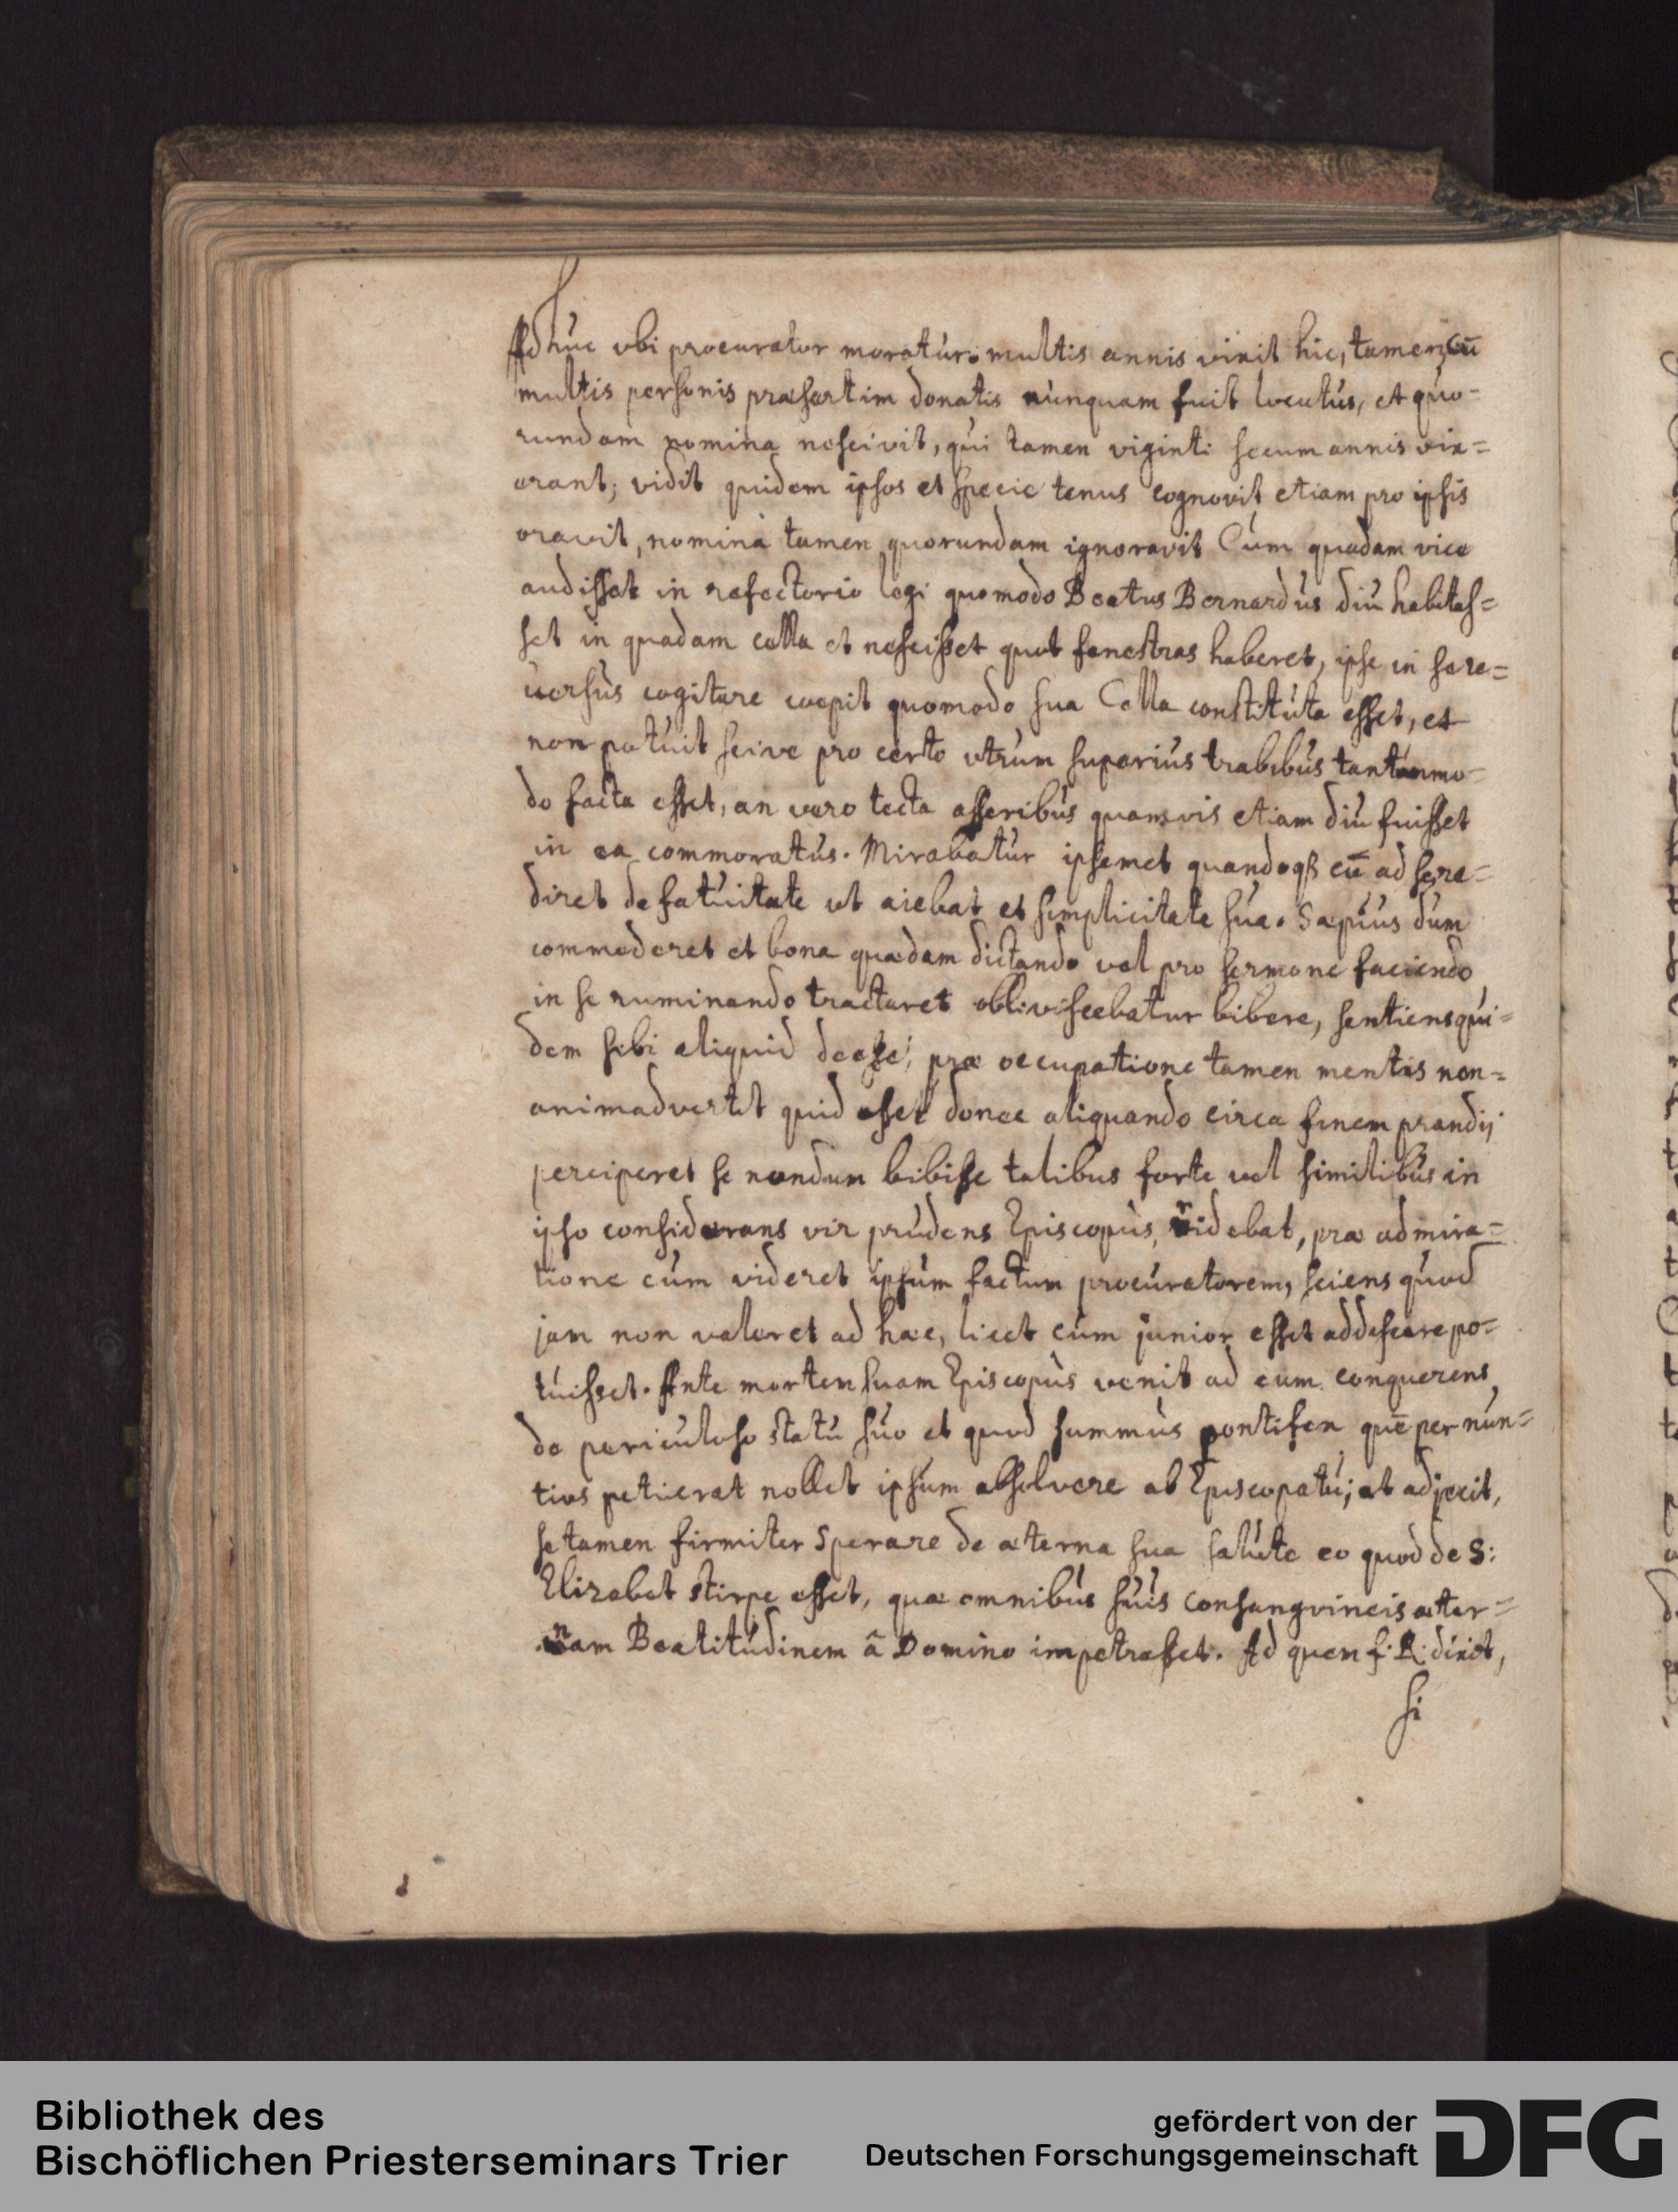 Adhuc ubi procurator moratur. multis annis vixit hic, tamen cū
multis personis præsertim donatis nunquam fuit locutus, et quo-
rundam nomina nescivit, qui tamen viginti secum annis vix=
erant; vidit quidem ipsos et specie tenus cognovit etiam pro ipsis
oravit, nomina tamen quorundam ignoravit Cum quadam vice
audisset in refectorio legi quomodo Beatus Bernardus diu habitas=
set in quadam cella et nescisset quot fenestras haberet, ipse in se re=
versus cogitare coepit quomodo sua Cella constituta esset, et
non potuit scire pro certo utrum superius trabibus tantummo-
do facta esset, an vero tecta asseribus quamvis etiam diu fuisset
in ea commoratus. Mirabatur ipsemet quandoq3 cū ad se re=
diret de fatuitate ut aiebat et simplicitate sua. Sæpius dum
commederet et bona quædam dictando vel pro sermone faciendo
in se ruminando tractaret obliviscebatur bibere, sentiens qui=
dem sibi aliquid deesse; præ occupatione tamen mentis non=
animadvertit quid esset donec aliquando circa finem prandij
perciperet se nondum bibisse talibus forte vel similibus in
ipso considerans vir prudens Episcopus, ridebat, præ admira=
tione cum videret ipsum factum procuratorem, sciens quod
jam non valeret ad hæc, licet cum junior esset addiscere po=
tuisset. Ante mortem suam Episcopus venit ad eum conquerens
de periculoso statu suo et quod summus pontifex quē per nun=
tios petierat nollet ipsum absolvere ab Episcopatu; at adjecit,
se tamen firmiter sperare de æterna sua salute eo quod de S:
Elizabet stirpe esset, quæ omnibus suis consangvineis æter=
nam Beatitudinem â Domino impetrasset. Ad quem f: R: dixit,
si
Bibliothek des
Bischöflichen Priesterseminars Trier
gefördert von der
Deutschen Forschungsgemeinschaft
DFG